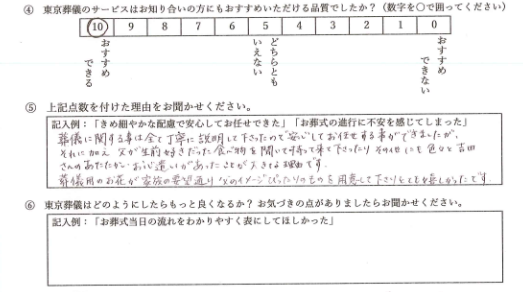 ④ 東京葬儀のサービスはお知り合いの方にもおすすめいただける品質でしたか？（数字を○で囲ってください）
10 9 8 7 6 5 4 3 2 1 0
おすすめできる
どちらともいえない
おすすめできない
⑤ 上記点数を付けた理由をお聞かせください。
記入例：「きめ細やかな配慮で安心してお任せできた」「お葬式の進行に不安を感じてしまった」
葬儀に関する事は全て丁寧に説明して下さったので安心してお任せする事ができましたが、
それに加え 父が生前好きだった食べ物を聞いて持って来て下さったり その他にも色々と吉田
さんのあたたかいお心遣いがあったことが大きな理由です。
葬儀用のお花が家族の要望通り 父のイメージぴったりのものを用意して下さりとても嬉しかったです
⑥ 東京葬儀はどのようにしたらもっと良くなるか？ お気づきの点がありましたらお聞かせください。
記入例：「お葬式当日の流れをわかりやすく表にしてほしかった」